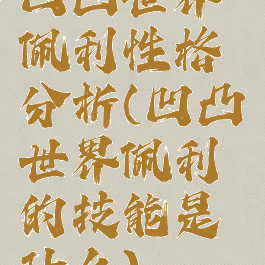 凹凸世界
佩利性格
分析(凹凸
世界佩利
的技能是
什么)